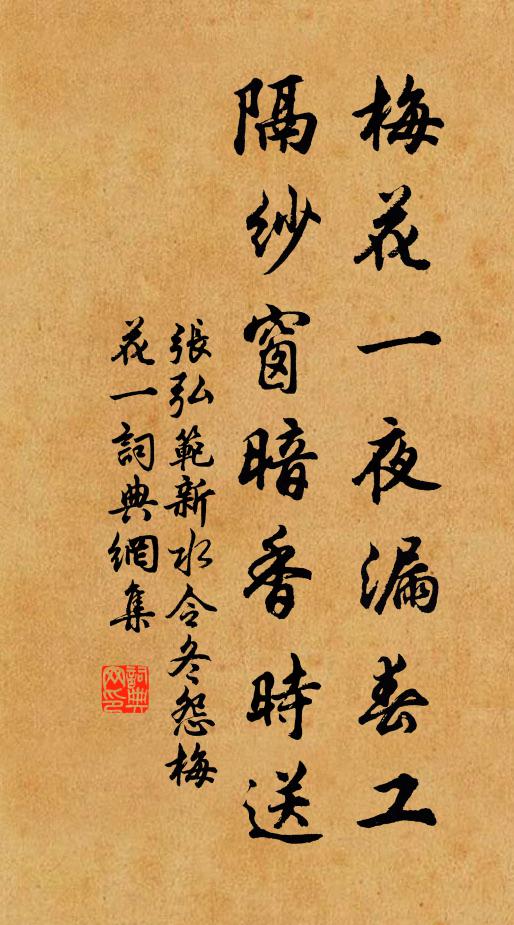 梅花一夜漏春工
隔紗窗暗香時送
張弘範新水令冬怨梅
花一詞典網集
詞典網印